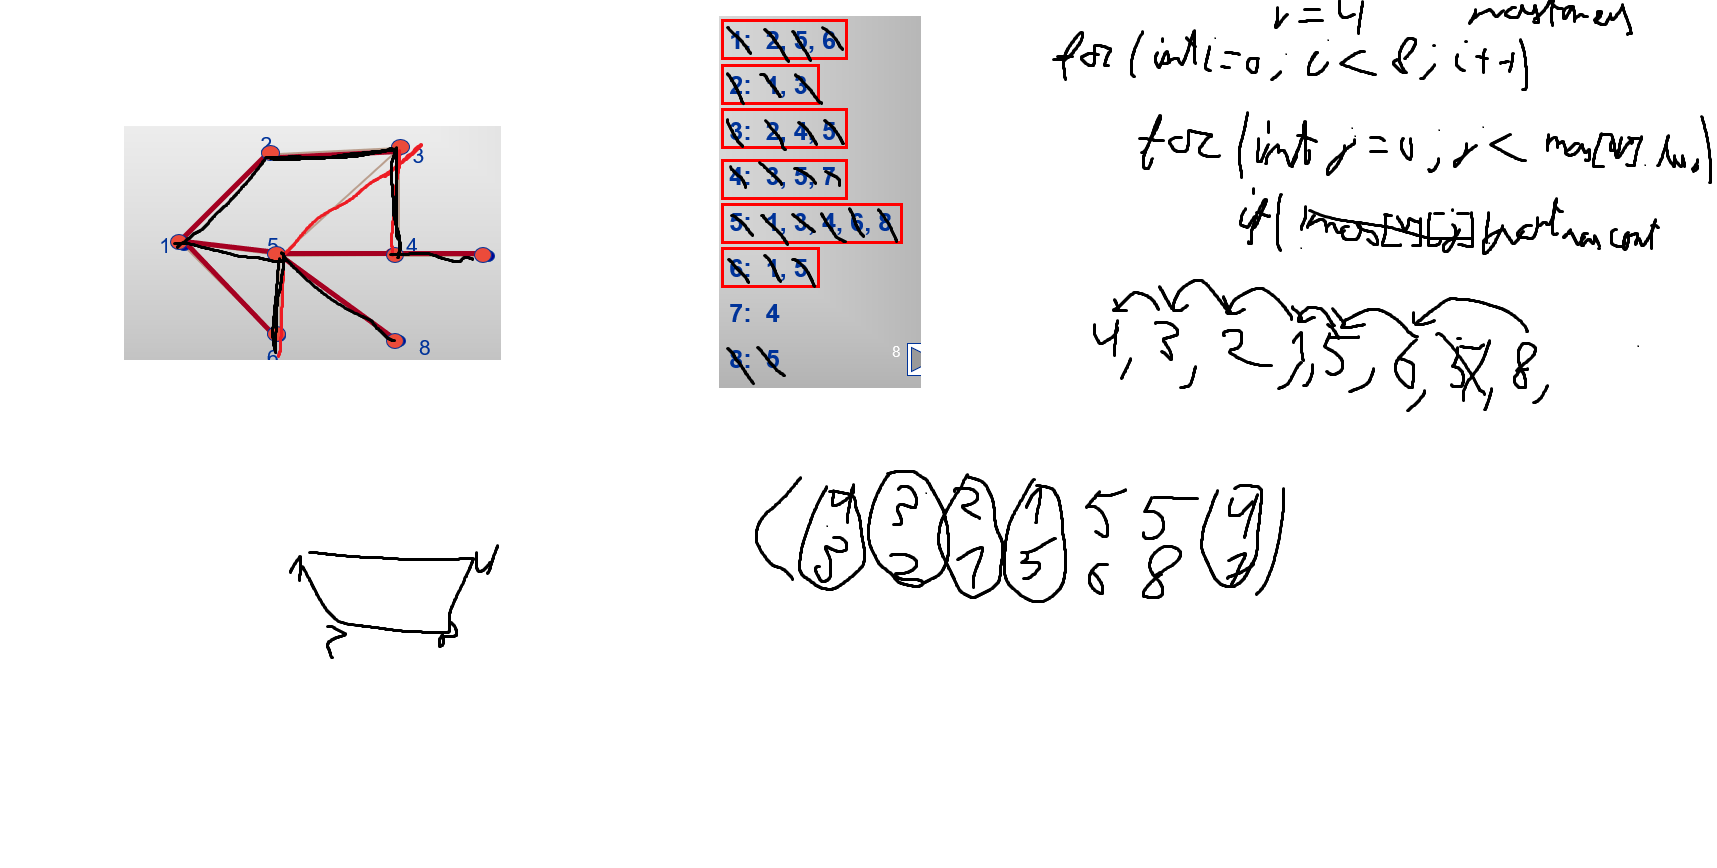 2
3
1
5
4
6
8
1: 2, 5, 6
2: 1, 3
3: 2, 4, 5
4: 3, 5, 7
5: 1, 3, 4, 6, 8
6: 1, 5
7: 4
8: 5
8
= 4
for (int i = 0; i < 8; i++)
for (int j = 0; j < mas[v].
if ( mas[v][j]
4, 3, 2, 1, 5, 6, 8,
( 4 3 2 1 5 5 4 )
3 2 1 5 6 8 7
1 4
2